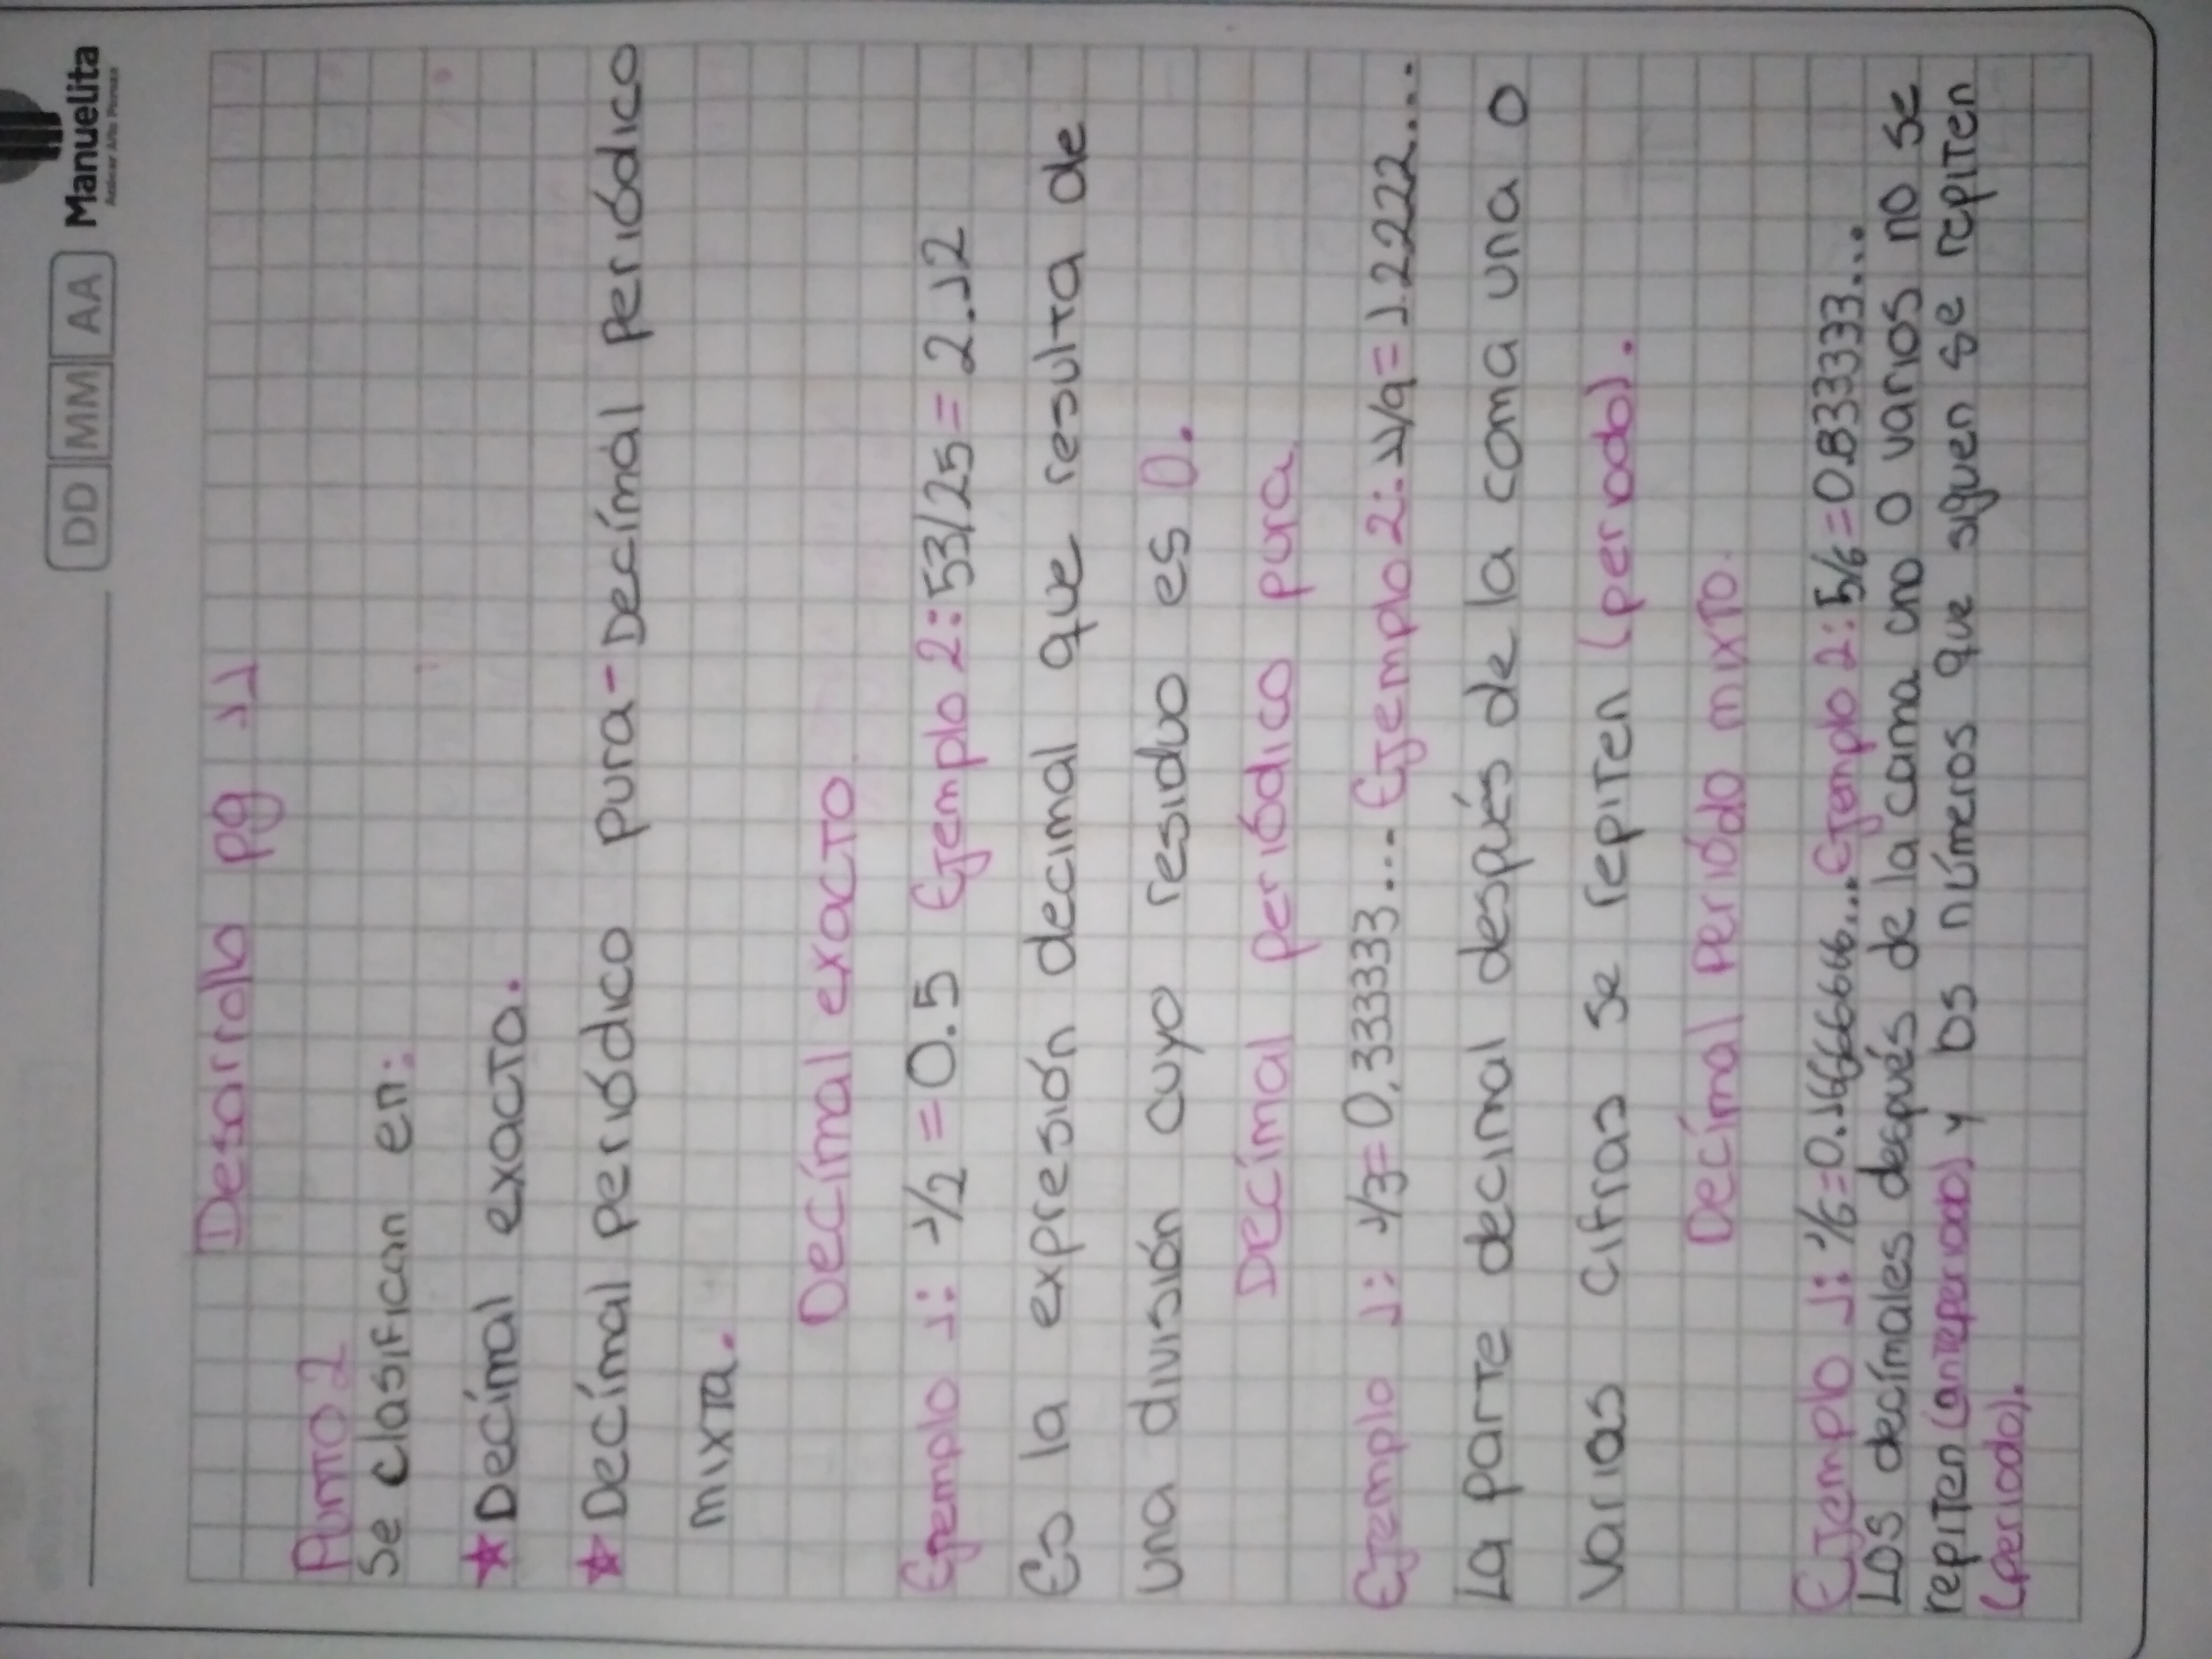 DD MM AA Manuelita
Desarrollo pg 11
Punto 2
Se clasifican en:
★ Decímal exacto.
★ Decímal periódico pura - Decímal periódico
mixta.
Decímal exacto
Ejemplo 1: 1/2 = 0.5 Ejemplo 2: 53/25 = 2.12
Es la expresión decimal que resulta de
una división cuyo residuo es 0.
Decímal periódico pura
Ejemplo 1: 1/3 = 0,333333... Ejemplo 2: 11/9 = 1.2222....
La parte decimal después de la coma una o
varias cifras se repiten (periodo).
Decímal periódo mixto.
Ejemplo 1: 1/6 = 0.1666666... Ejemplo 2: 5/6 = 0.833333...
Los decímales después de la cama uno o varios no se
repiten (anteperiodo) y los números que siguen se repiten
(periodo).